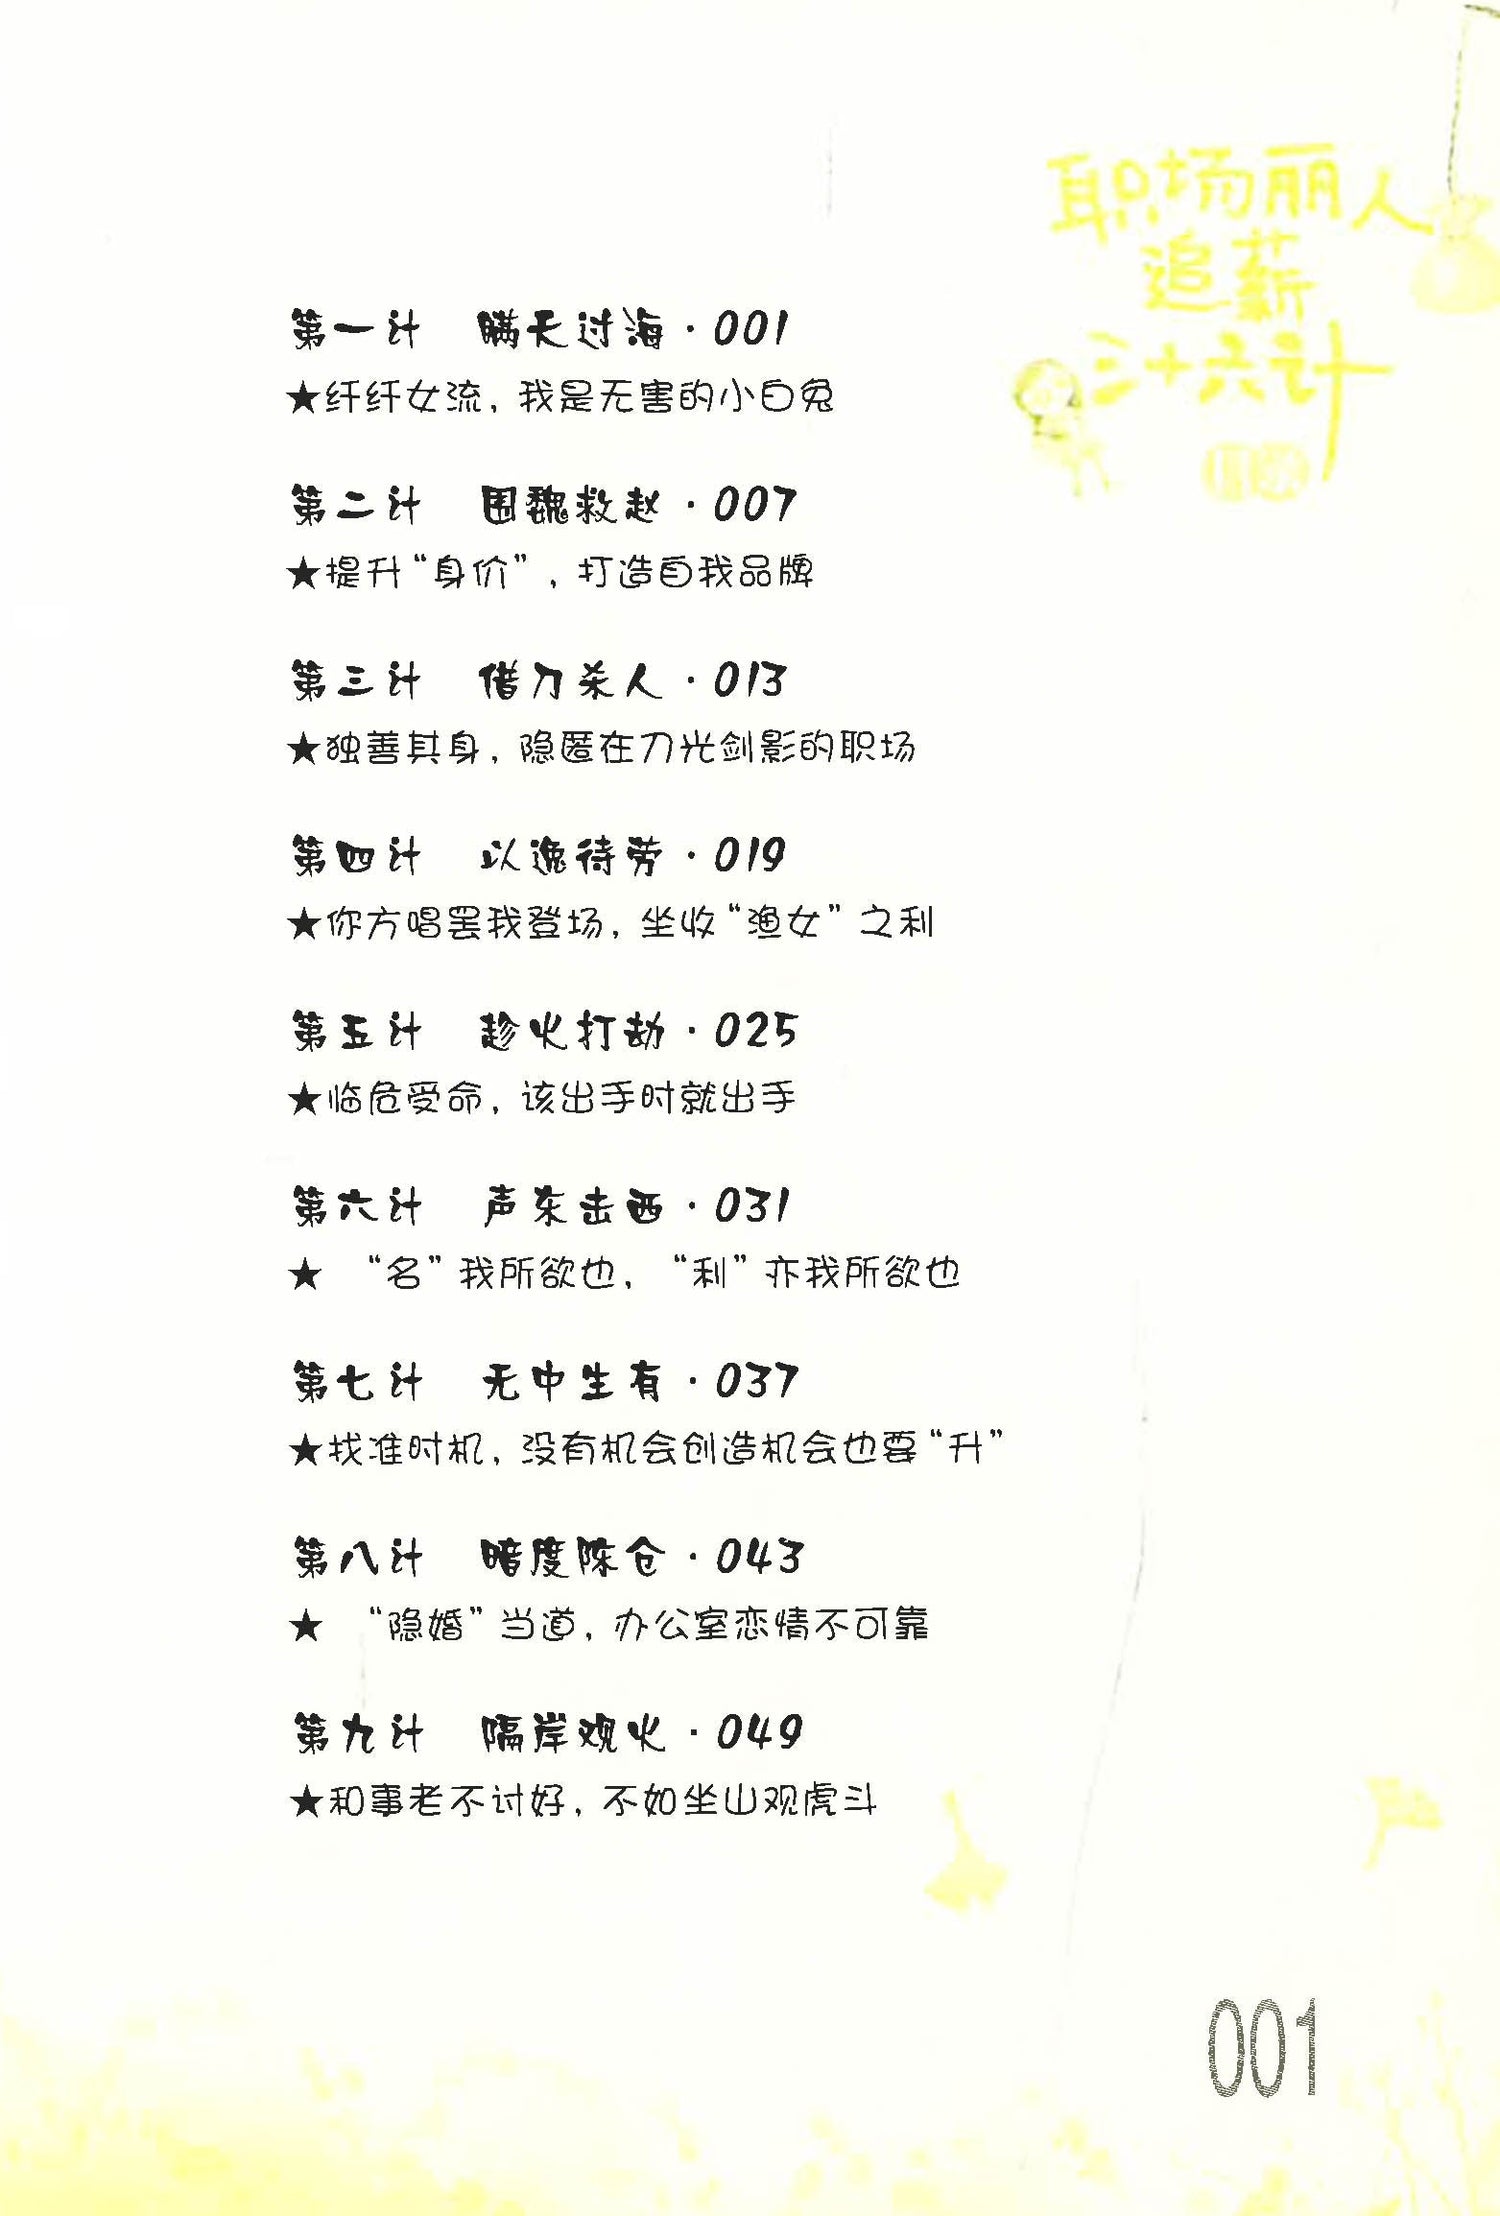 职场丽人
追薪
三十六计
第一计 瞒天过海·001
★纤纤女流，我是无害的小白兔
第二计 围魏救赵·007
★提升“身价”，打造自我品牌
第三计 借刀杀人·013
★独善其身，隐匿在刀光剑影的职场
第四计 以逸待劳·019
★你方唱罢我登场，坐收“渔女”之利
第五计 趁火打劫·025
★临危受命，该出手时就出手
第六计 声东击西·031
★ “名”我所欲也，“利”亦我所欲也
第七计 无中生有·037
★找准时机，没有机会创造机会也要“升”
第八计 暗度陈仓·043
★ “隐婚”当道，办公室恋情不可靠
第九计 隔岸观火·049
★和事老不讨好，不如坐山观虎斗
001